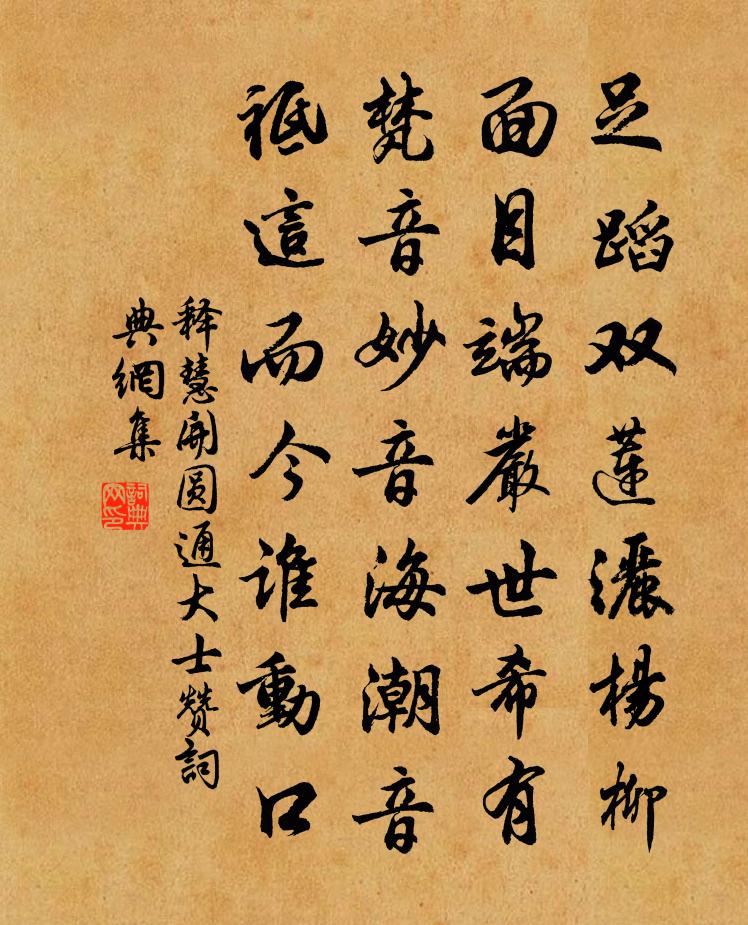 足蹈双莲灑楊柳
面目端嚴世希有
梵音妙音海潮音
祗這而今谁動口
释慧開圆通大士赞詞
典網集
詞典
网印